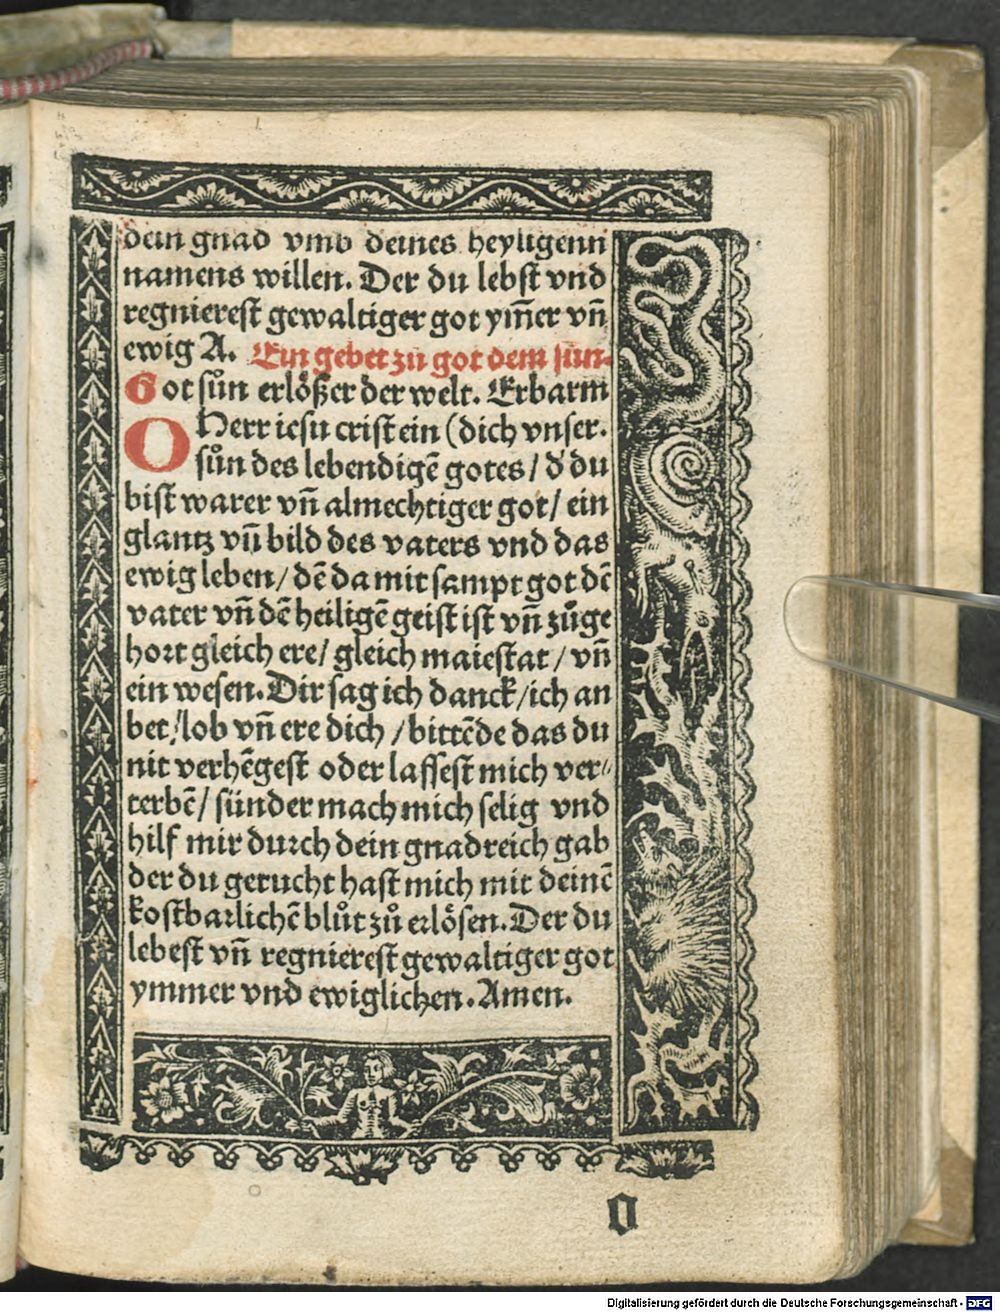 dein gnad vmb deines heyligenn
namens willen. Der du lebst vnd
regnierest gewaltiger got ym̄er vn̄
ewig A. Ein gebet zu got dem sun-
Got sůn erlößer der welt. Erbarm
O Herr iesu crist ein (dich vnser.
sůn des lebendigē gotes / d' du
bist warer vn̄ almechtiger got / ein
glantz vn̄ bild des vaters vnd das
ewig leben / dē da mit sampt got dē
vater vn̄ dē heiligē geist ist vn̄ zůge
hort gleich ere / gleich maiestat / vn̄
ein wesen. Dir sag ich danck / ich an
bet / lob vn̄ ere dich / bittēde das du
nit verhēgest oder lassest mich ver⸗
terbē / sünder mach mich selig vnd
hilf mir durch dein gnadreich gab
der du gerucht hast mich mit deinē
kostbarlichē blůt zů erlösen. Der du
lebest vn̄ regnierest gewaltiger got
ymmer vnd ewiglichen. Amen.
O
Digitalisierung gefördert durch die Deutsche Forschungsgemeinschaft - DFG